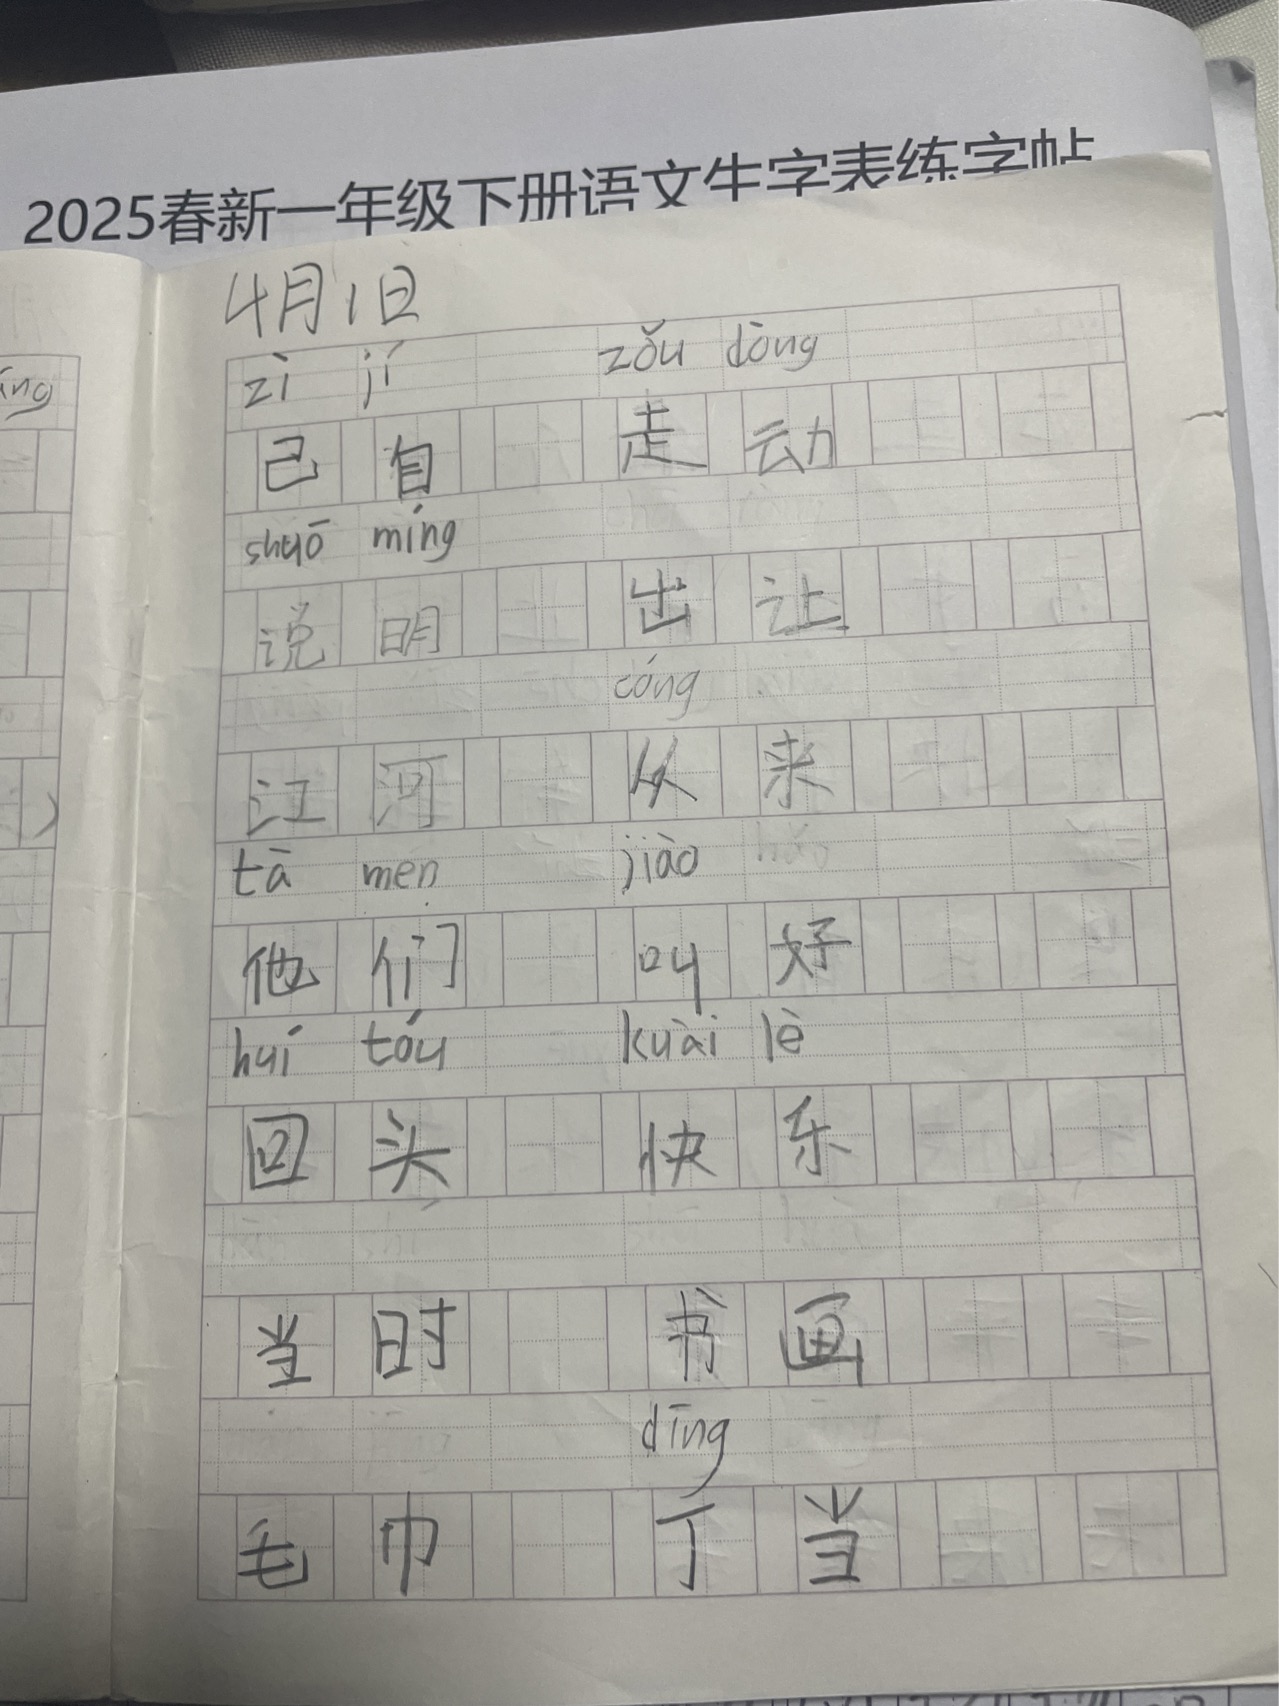 2025春新一年级下册语文生字表练字帖
4月1日
zì jí zǒu dòng
己自 走动
shuō míng
说明 出让
cóng
江河 从来
tā men jiào
他们 叫好
huí tóu kuài lè
回头 快乐
当时 书画
dīng
毛巾 丁当